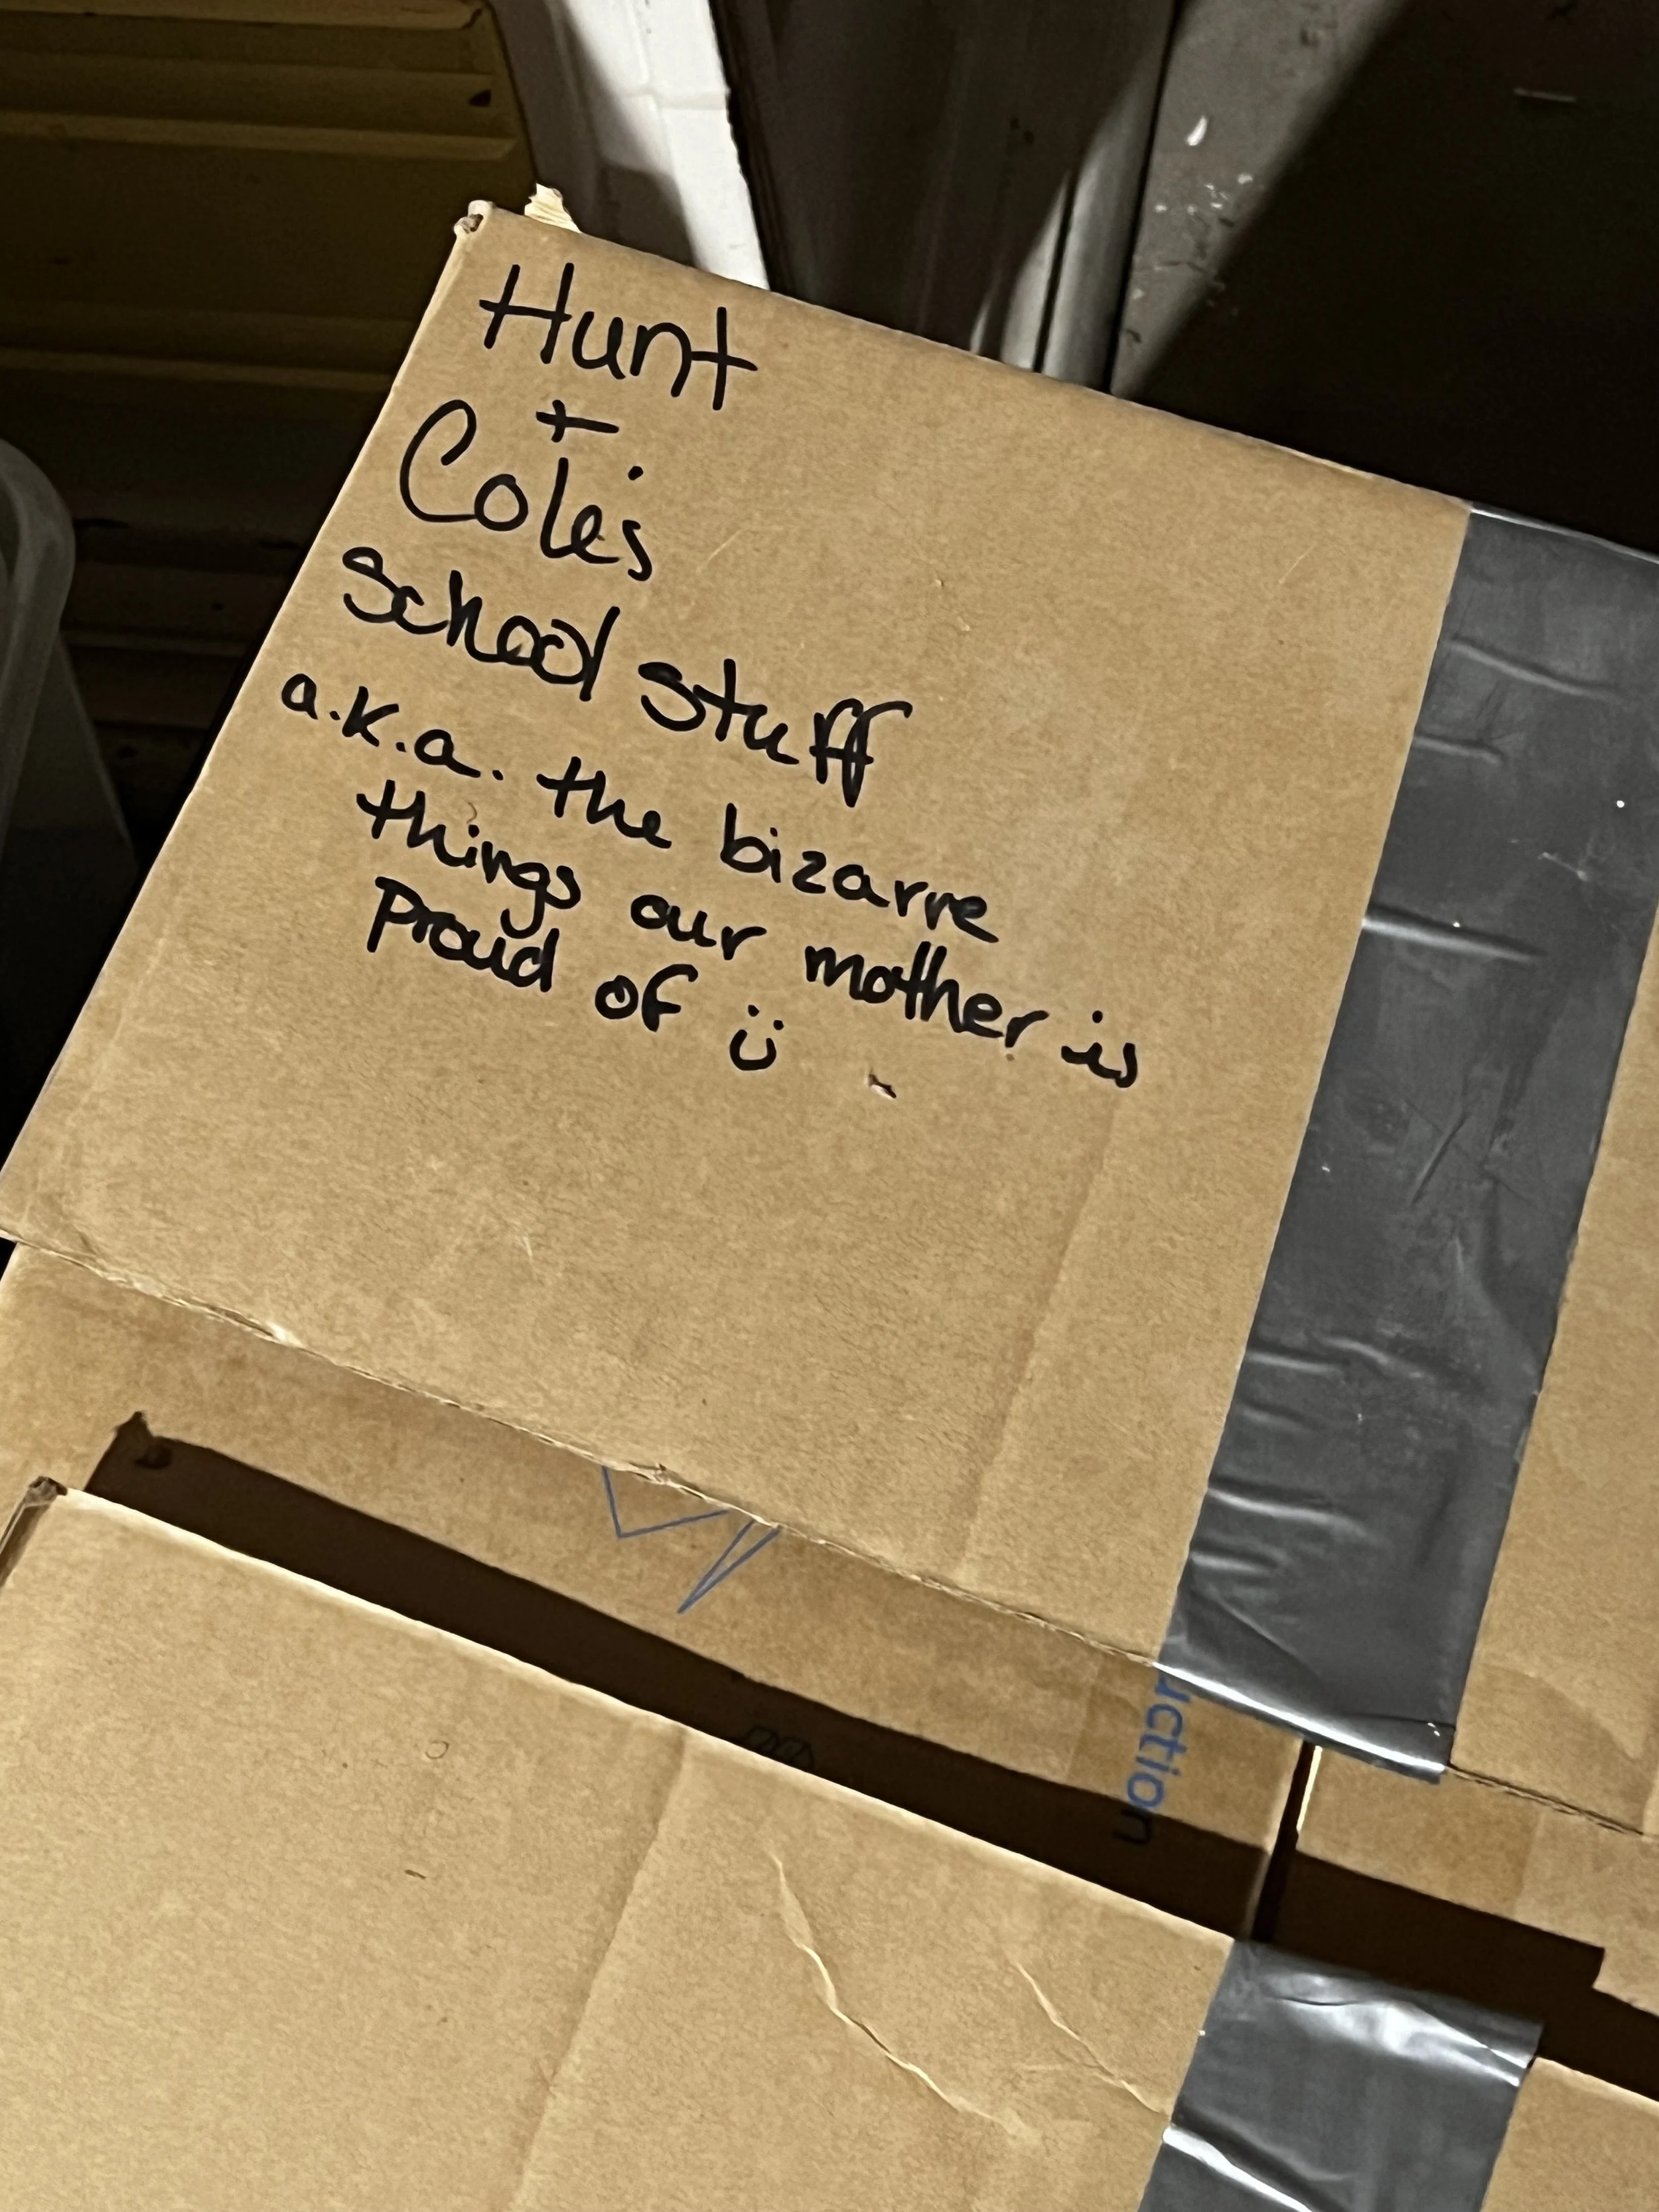 Hunt
+
Cole's
School stuff
a.k.a. the bizarre
things our mother is
Proud of ü
uction